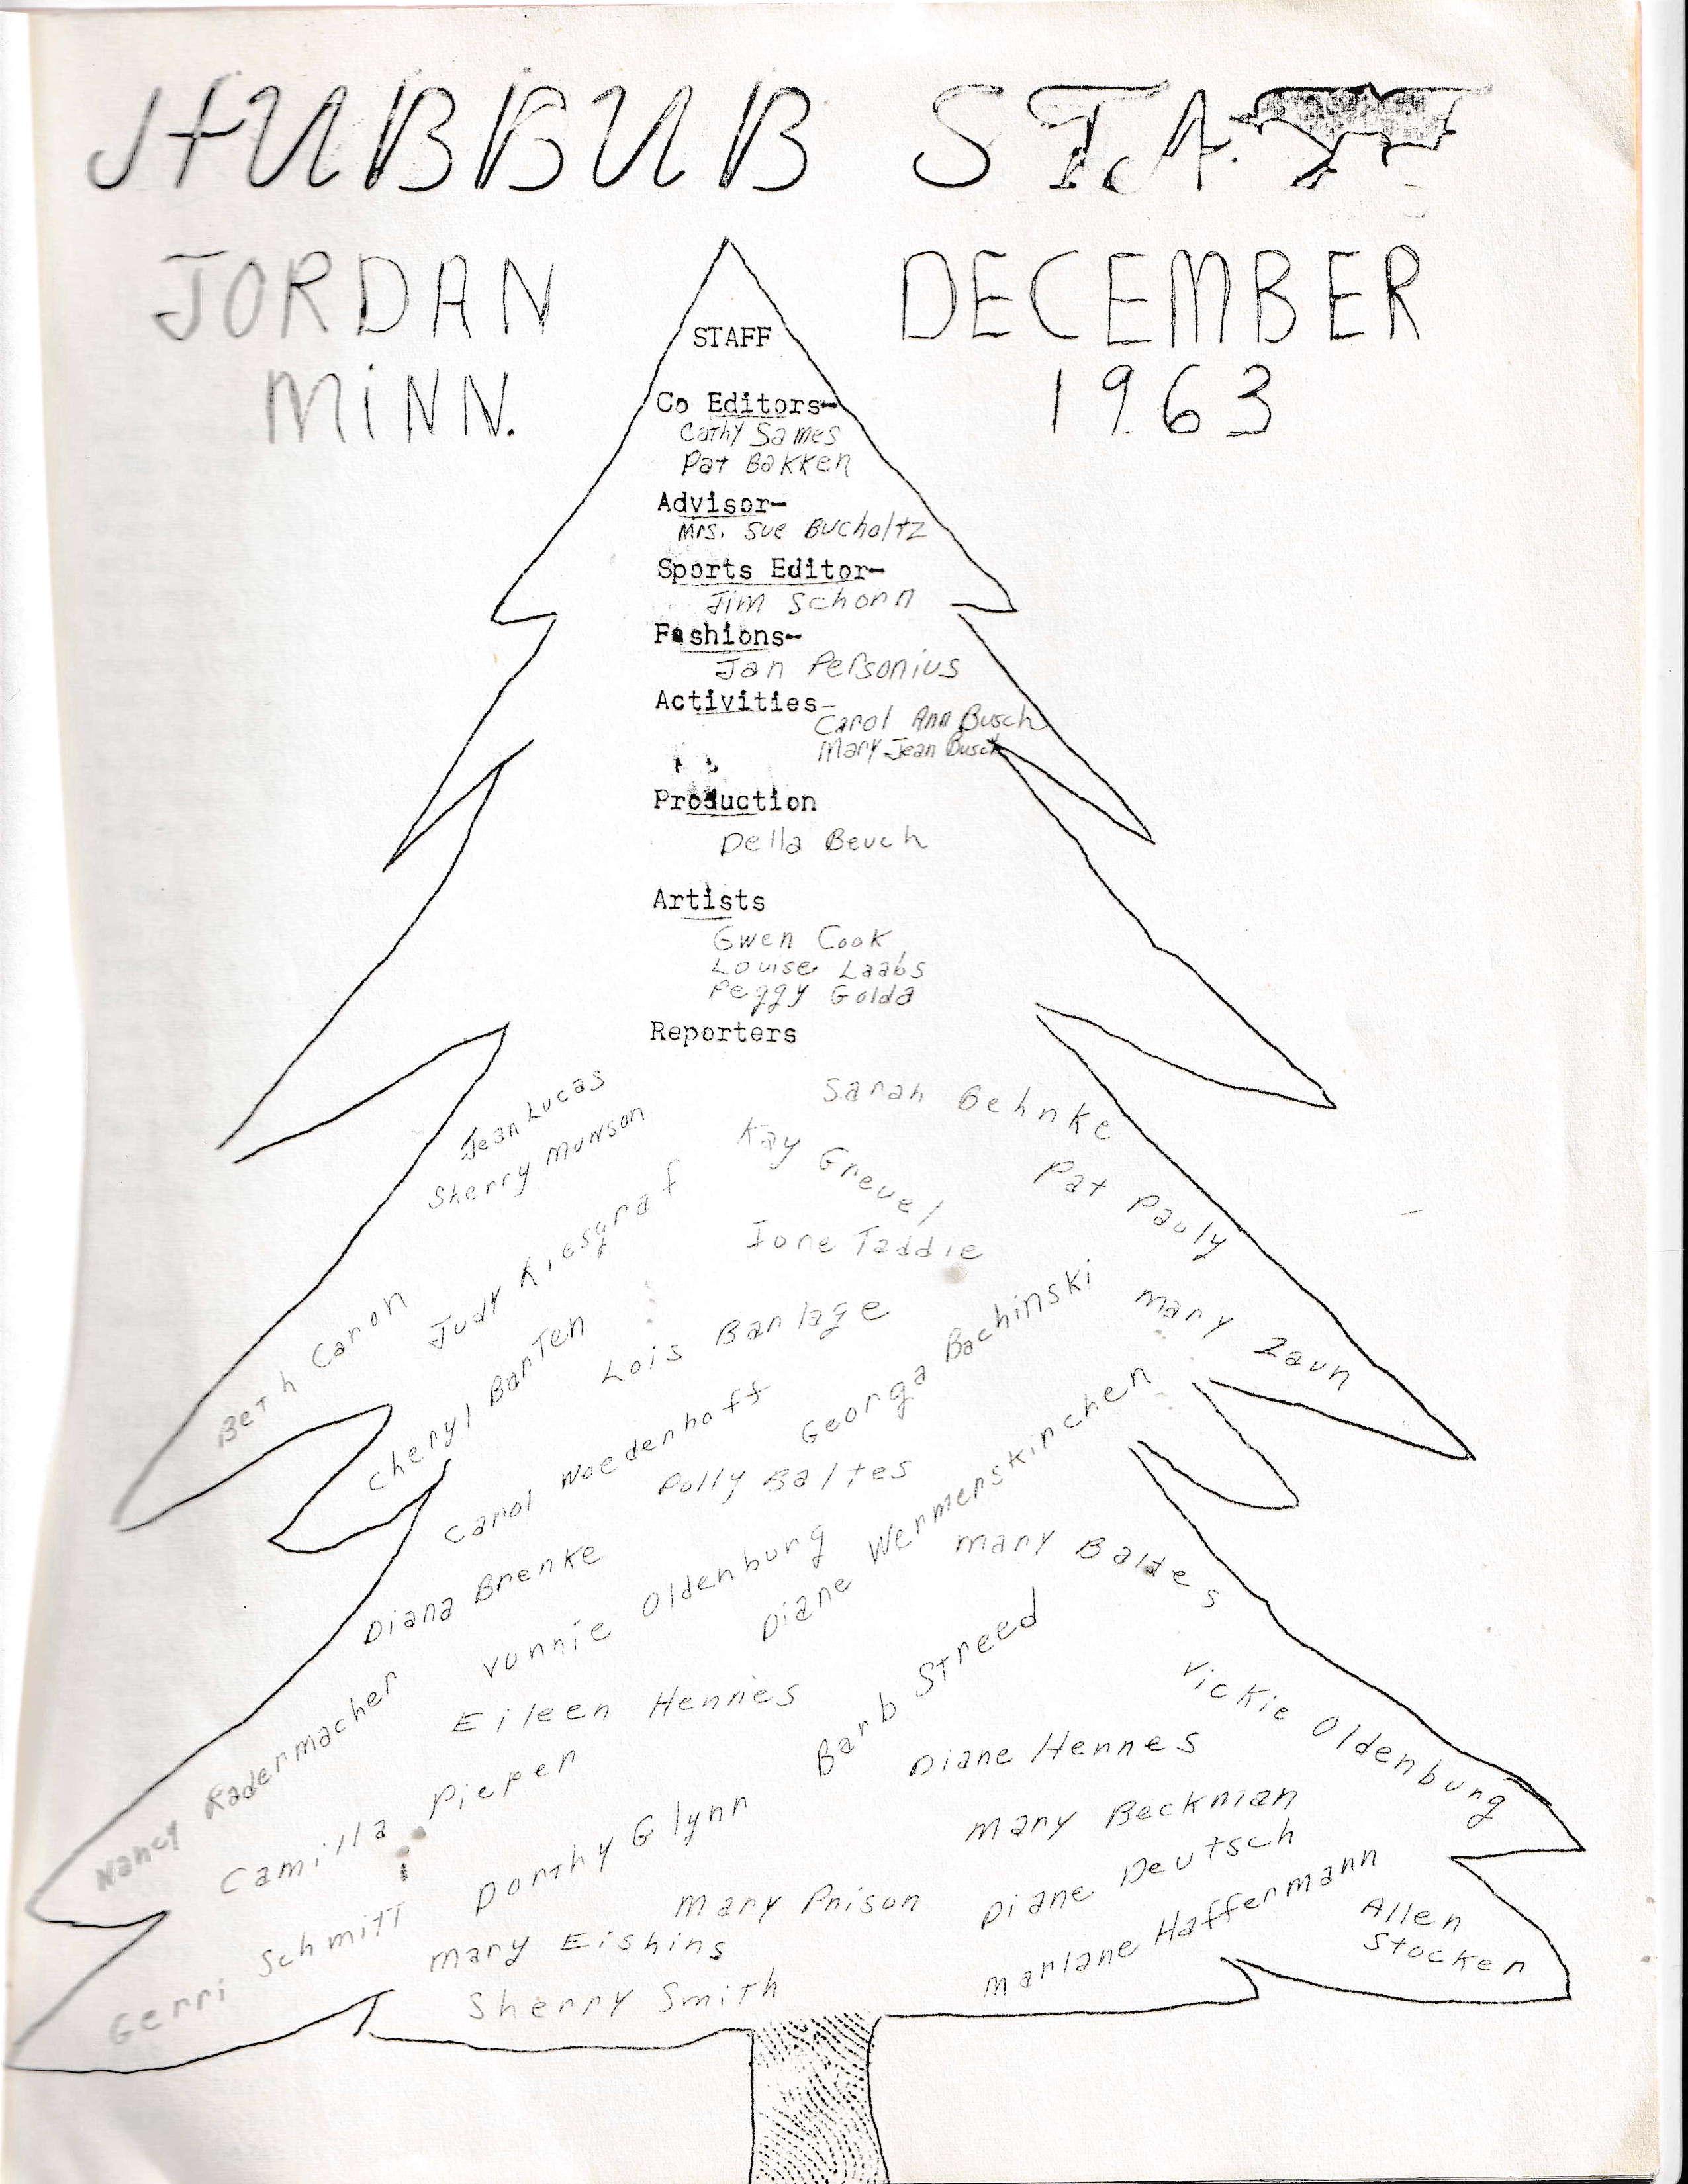 HUBBUB STAFF
JORDAN MINN.
DECEMBER 1963
STAFF
Co Editors-
Cathy Sames
Pat Bakken
Advisor-
Mrs. Sue Bucholtz
Sports Editor-
Jim Schonn
Fashions-
Jan Personius
Activities-
Carol Ann Busch
Mary Jean Busch
Production
Della Beuch
Artists
Gwen Cook
Louise Laabs
Peggy Golda
Reporters
Jean Lucas
Sherry Munson
Sarah Behnke
Kay Greuel
Pat Pauly
Judy Kiesgraf
Ione Taddie
Beth Caron
Cheryl Barten
Lois Barlage
Georga Bachinski
Mary Zaun
Carol Woedenhoff
Polly Baltes
Diane Wermerskirchen
Mary Baltes
Diana Brenke
Vonnie Oldenburg
Barb Streed
Vickie Oldenburg
Nancy Radermacher
Eileen Hennes
Diane Hennes
Camilla Pieper
Mary Beckman
Dorthy Glynn
Diane Deutsch
Gerri Schmitt
Mary Prison
Marlane Haffermann
Allen Stocker
Mary Eishins
Sherry Smith